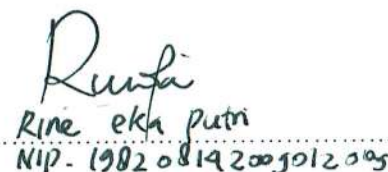 Rine eka putri
NIP. 198208142009012009